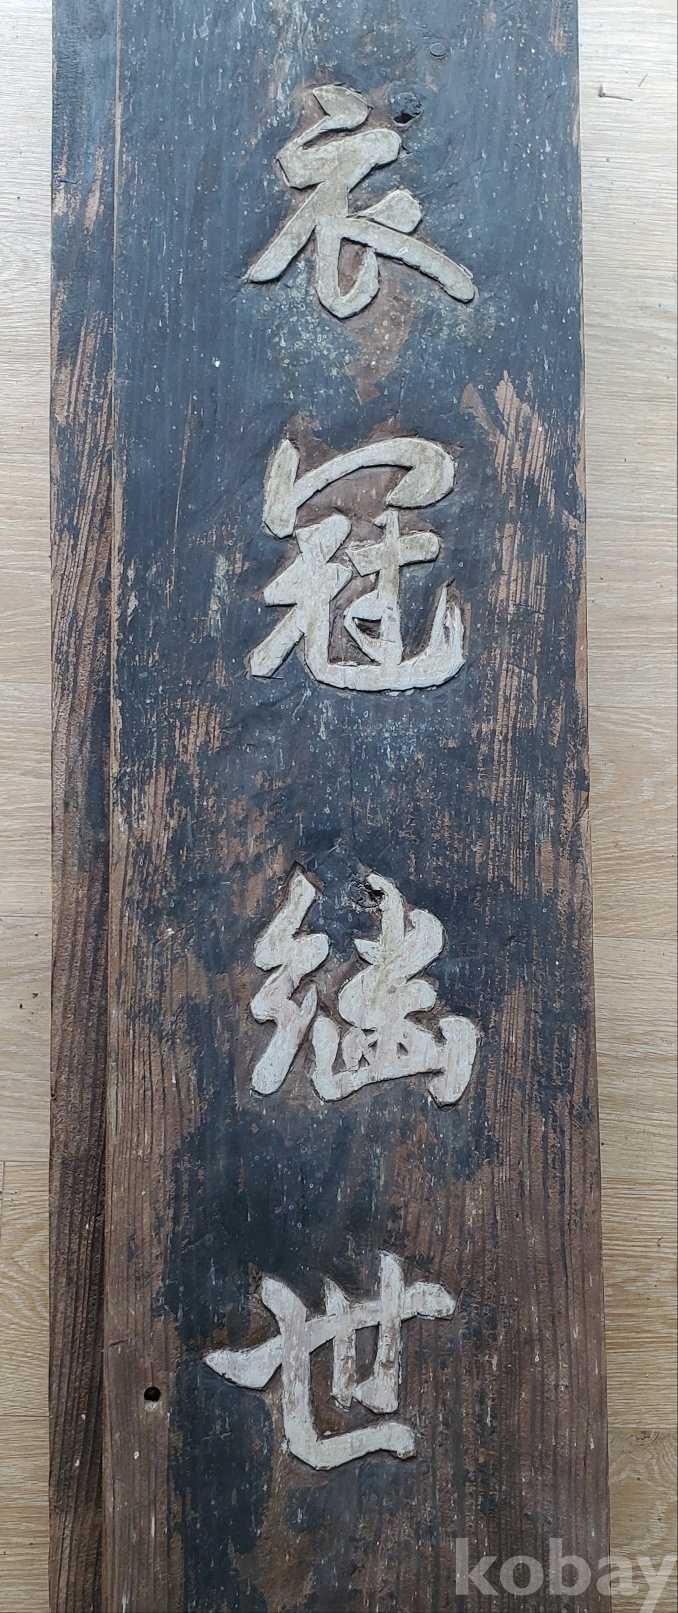 衣冠继世
kobay